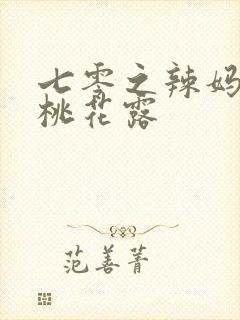 七零之辣妈
桃花露
范善菁